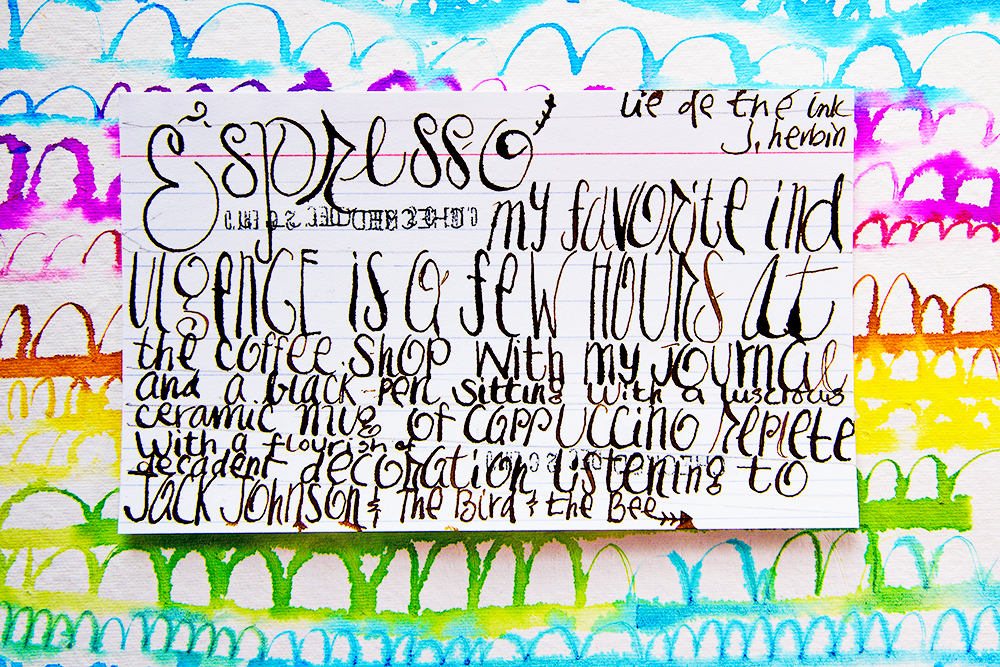 Lie de thé ink
J. herbin
Espresso
my favorite ind
ulgENCE is a few HOURS at
the coffee shop with my journal
and a black pen sitting with a luscious
ceramic mug of cappuccino replete
with a flourish of
decadent decoration listening to
Jack Johnson & The Bird & the Bee